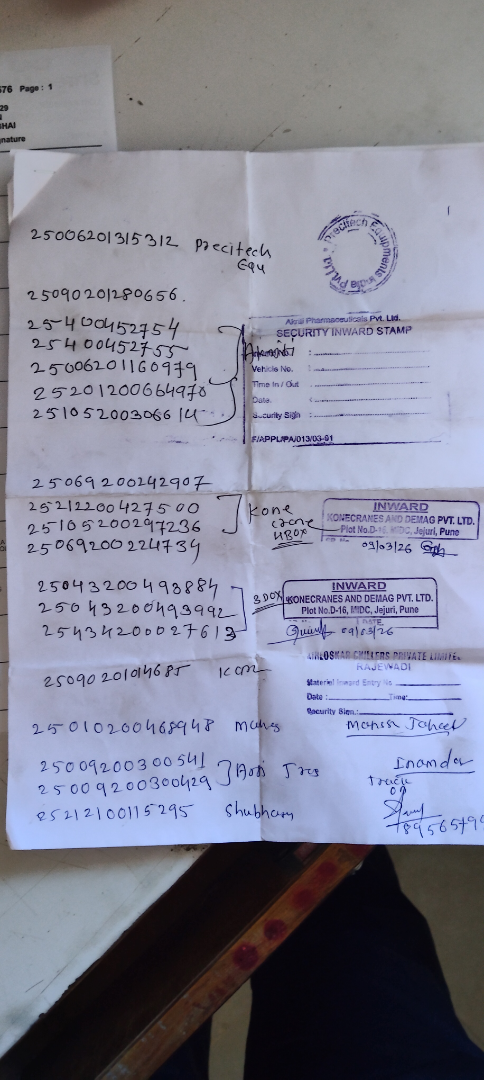 676 Page : 1
29
HAI
nature
25006201315312 Precitech
Equ
Precitech Equipments India Pvt. Ltd.
25090201280656.
25400452754
25400452755
25006201160979
25201200664970
25105200306614
Akrai Pharmaceuticals Pvt. Ltd.
SECURITY INWARD STAMP
Vehicle No. :
Time In / Out :
Date. :
Security Sign :
F/APPL/PA/013/03-01
25069200242907
25212200427500
25105200297236
25069200224734
Kone
crane
HBOX
INWARD
KONECRANES AND DEMAG PVT. LTD.
Plot No.D-16, MIDC, Jejuri, Pune
09/03/26
25043200493884
25043200493992
25434200027613
3 BOX
INWARD
KONECRANES AND DEMAG PVT. LTD.
Plot No.D-16, MIDC, Jejuri, Pune
DATE
09/03/26
25090201014685
KIRLOSKAR CHILLERS PRIVATE LIMITED
RAJEWADI
Material Inward Entry No
Date : Time:
Security Sign.:
25010200468948
25009200300541
25009200300429
Inamdar
25212100115295 Shubham